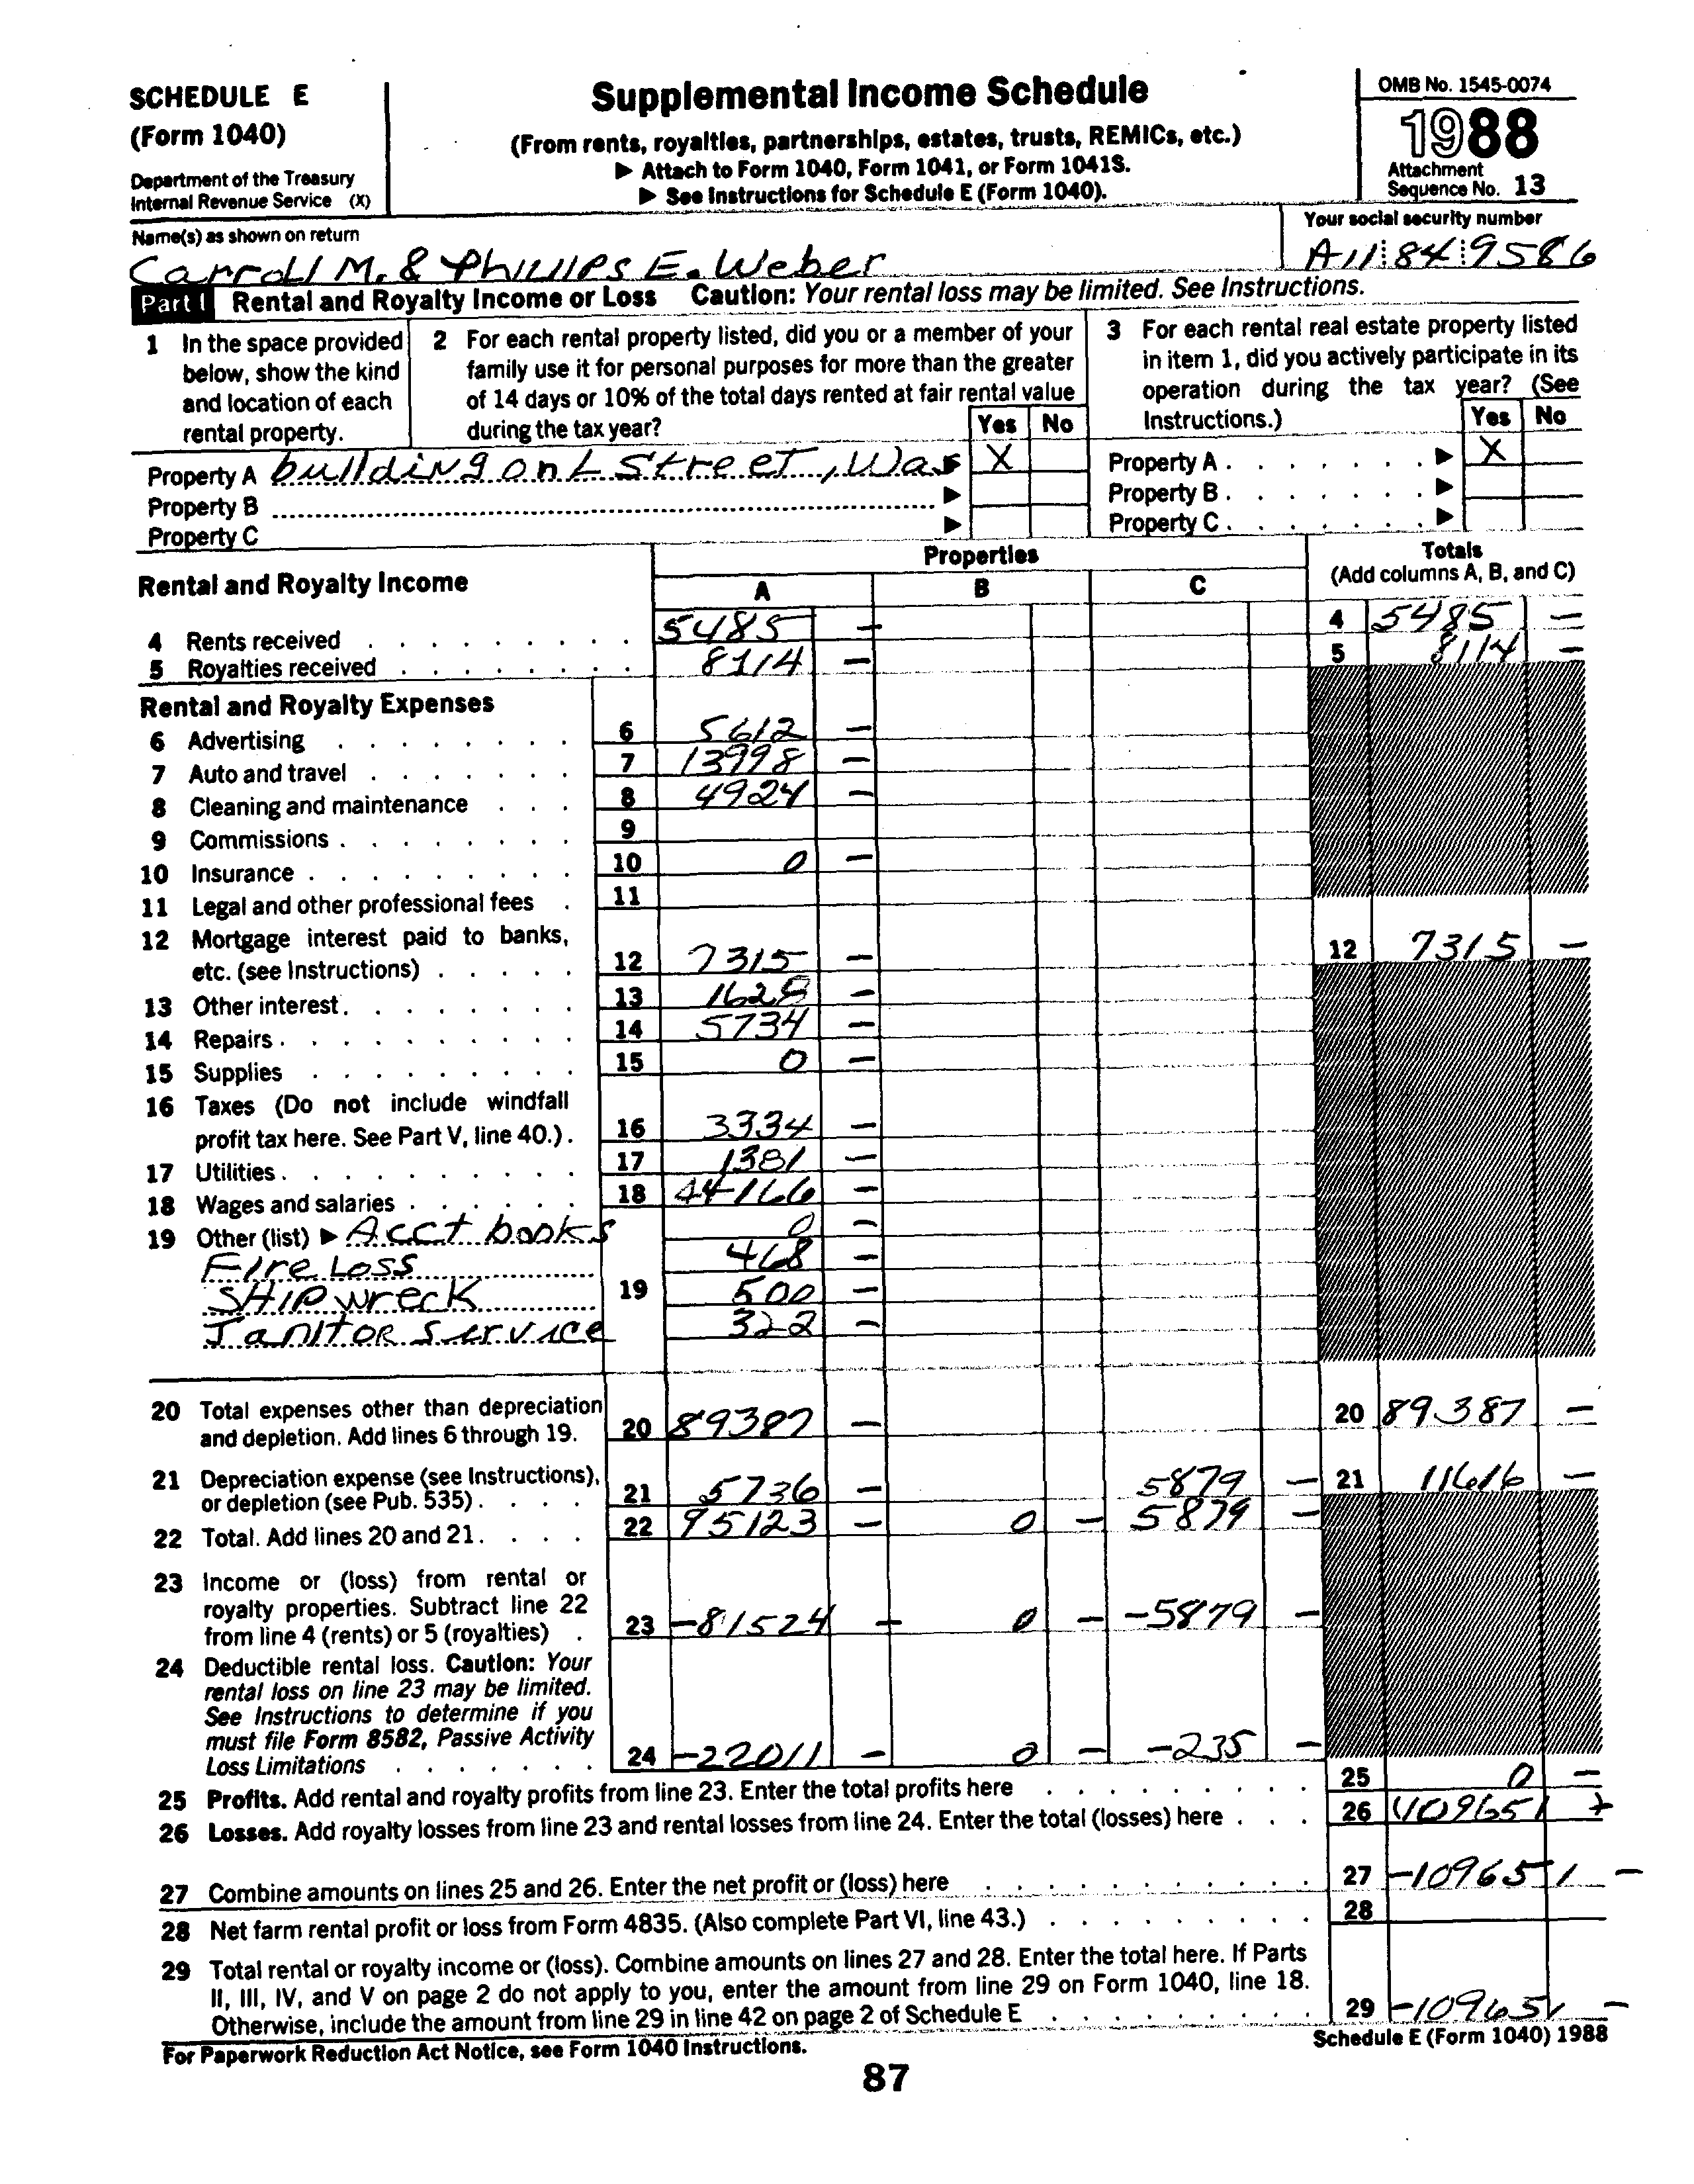 SCHEDULE E
(Form 1040)
Department of the Treasury
Internal Revenue Service (X)
Supplemental Income Schedule
(From rents, royalties, partnerships, estates, trusts, REMICs, etc.)
▶ Attach to Form 1040, Form 1041, or Form 1041S.
▶ See Instructions for Schedule E (Form 1040).
OMB No. 1545-0074
1988
Attachment
Sequence No. 13
Name(s) as shown on return
Carroll M. & Phillips E. Weber
Your social security number
A11 84 9586
Part I Rental and Royalty Income or Loss Caution: Your rental loss may be limited. See Instructions.
1 In the space provided
below, show the kind
and location of each
rental property.
2 For each rental property listed, did you or a member of your
family use it for personal purposes for more than the greater
of 14 days or 10% of the total days rented at fair rental value
during the tax year?
Yes No
3 For each rental real estate property listed
in item 1, did you actively participate in its
operation during the tax year? (See
Instructions.)
Yes No
Property A building on L Street, Was X
Property B ▶
Property C ▶
Property A ▶ X
Property B ▶
Property C ▶
Rental and Royalty Income
Properties
A B C
Totals
(Add columns A, B, and C)
4 Rents received 5485 – 4 5485 –
5 Royalties received 8114 – 5 8114 –
Rental and Royalty Expenses
6 Advertising 6 5612 –
7 Auto and travel 7 13998 –
8 Cleaning and maintenance 8 4924 –
9 Commissions 9
10 Insurance 10 0 –
11 Legal and other professional fees 11
12 Mortgage interest paid to banks,
etc. (see Instructions) 12 7315 – 12 7315 –
13 Other interest 13 1628 –
14 Repairs 14 5734 –
15 Supplies 15 0 –
16 Taxes (Do not include windfall
profit tax here. See Part V, line 40.) 16 3334 –
17 Utilities 17 1381 –
18 Wages and salaries 18 44166 –
19 Other (list) ▶ Acct books 0 –
Fire Loss 468 –
SHIPwreck 19 500 –
JanITOR Service 322 –
20 Total expenses other than depreciation
and depletion. Add lines 6 through 19. 20 89387 – 20 89387 –
21 Depreciation expense (see Instructions),
or depletion (see Pub. 535) 21 5736 – 5879 – 21 11616 –
22 Total. Add lines 20 and 21 22 95123 – 0 – 5879 –
23 Income or (loss) from rental or
royalty properties. Subtract line 22
from line 4 (rents) or 5 (royalties) 23 -81524 – 0 – -5879 –
24 Deductible rental loss. Caution: Your
rental loss on line 23 may be limited.
See Instructions to determine if you
must file Form 8582, Passive Activity
Loss Limitations 24 -22011 – 0 – -235 –
25 Profits. Add rental and royalty profits from line 23. Enter the total profits here 25 0 –
26 Losses. Add royalty losses from line 23 and rental losses from line 24. Enter the total (losses) here 26 (109651 )
27 Combine amounts on lines 25 and 26. Enter the net profit or (loss) here 27 -109651 –
28 Net farm rental profit or loss from Form 4835. (Also complete Part VI, line 43.) 28
29 Total rental or royalty income or (loss). Combine amounts on lines 27 and 28. Enter the total here. If Parts
II, III, IV, and V on page 2 do not apply to you, enter the amount from line 29 on Form 1040, line 18.
Otherwise, include the amount from line 29 in line 42 on page 2 of Schedule E 29 -109651 –
For Paperwork Reduction Act Notice, see Form 1040 Instructions.
Schedule E (Form 1040) 1988
87